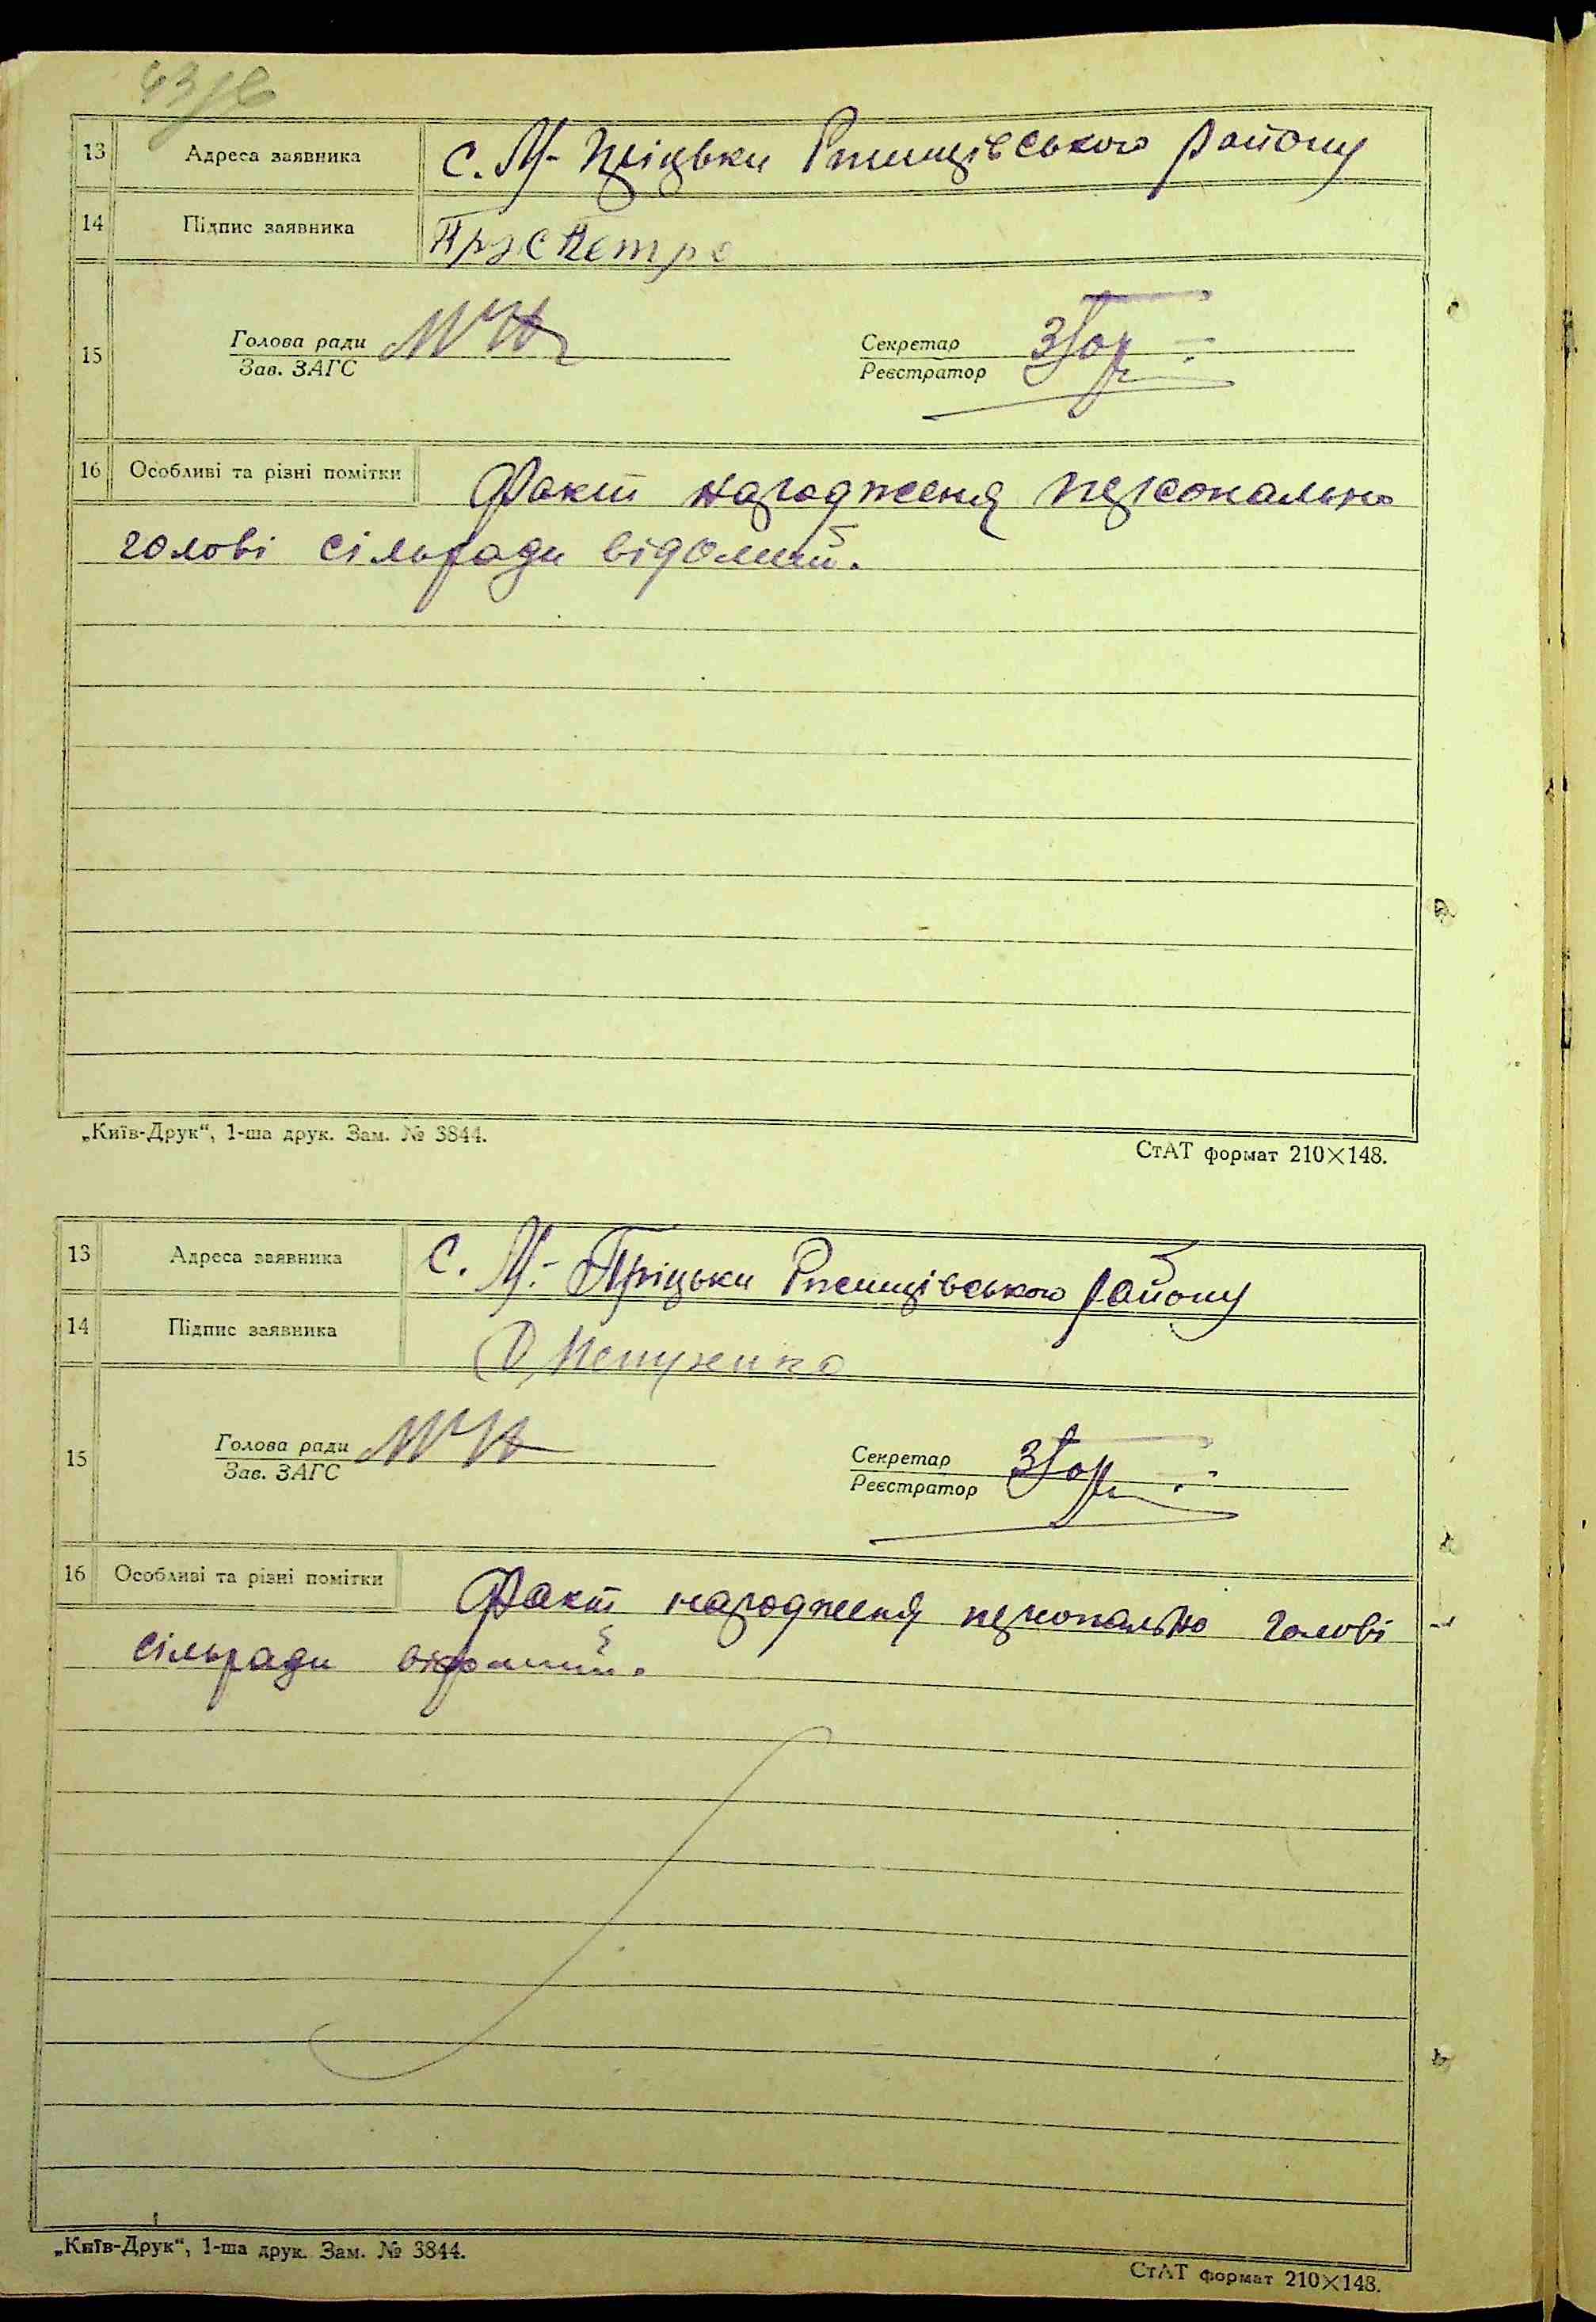 13 Адреса заявника С. М-Пріцьки Ржищівського району
14 Підпис заявника Прус Петро
15 Голова ради Секретар
Зав. ЗАГС Реєстратор
16 Особливі та різні помітки Факт народження персонально
голові сільради відомий.
„Київ-Друк“, 1-ша друк. Зам. № 3844.
СтАТ формат 210×148.
13 Адреса заявника С. М.-Пріцьки Ржищівського району
14 Підпис заявника
15 Голова ради Секретар
Зав. ЗАГС Реєстратор
16 Особливі та різні помітки Факт народження персонально голові
сільради відомий.
„Київ-Друк“, 1-ша друк. Зам. № 3844.
СтАТ формат 210×148.